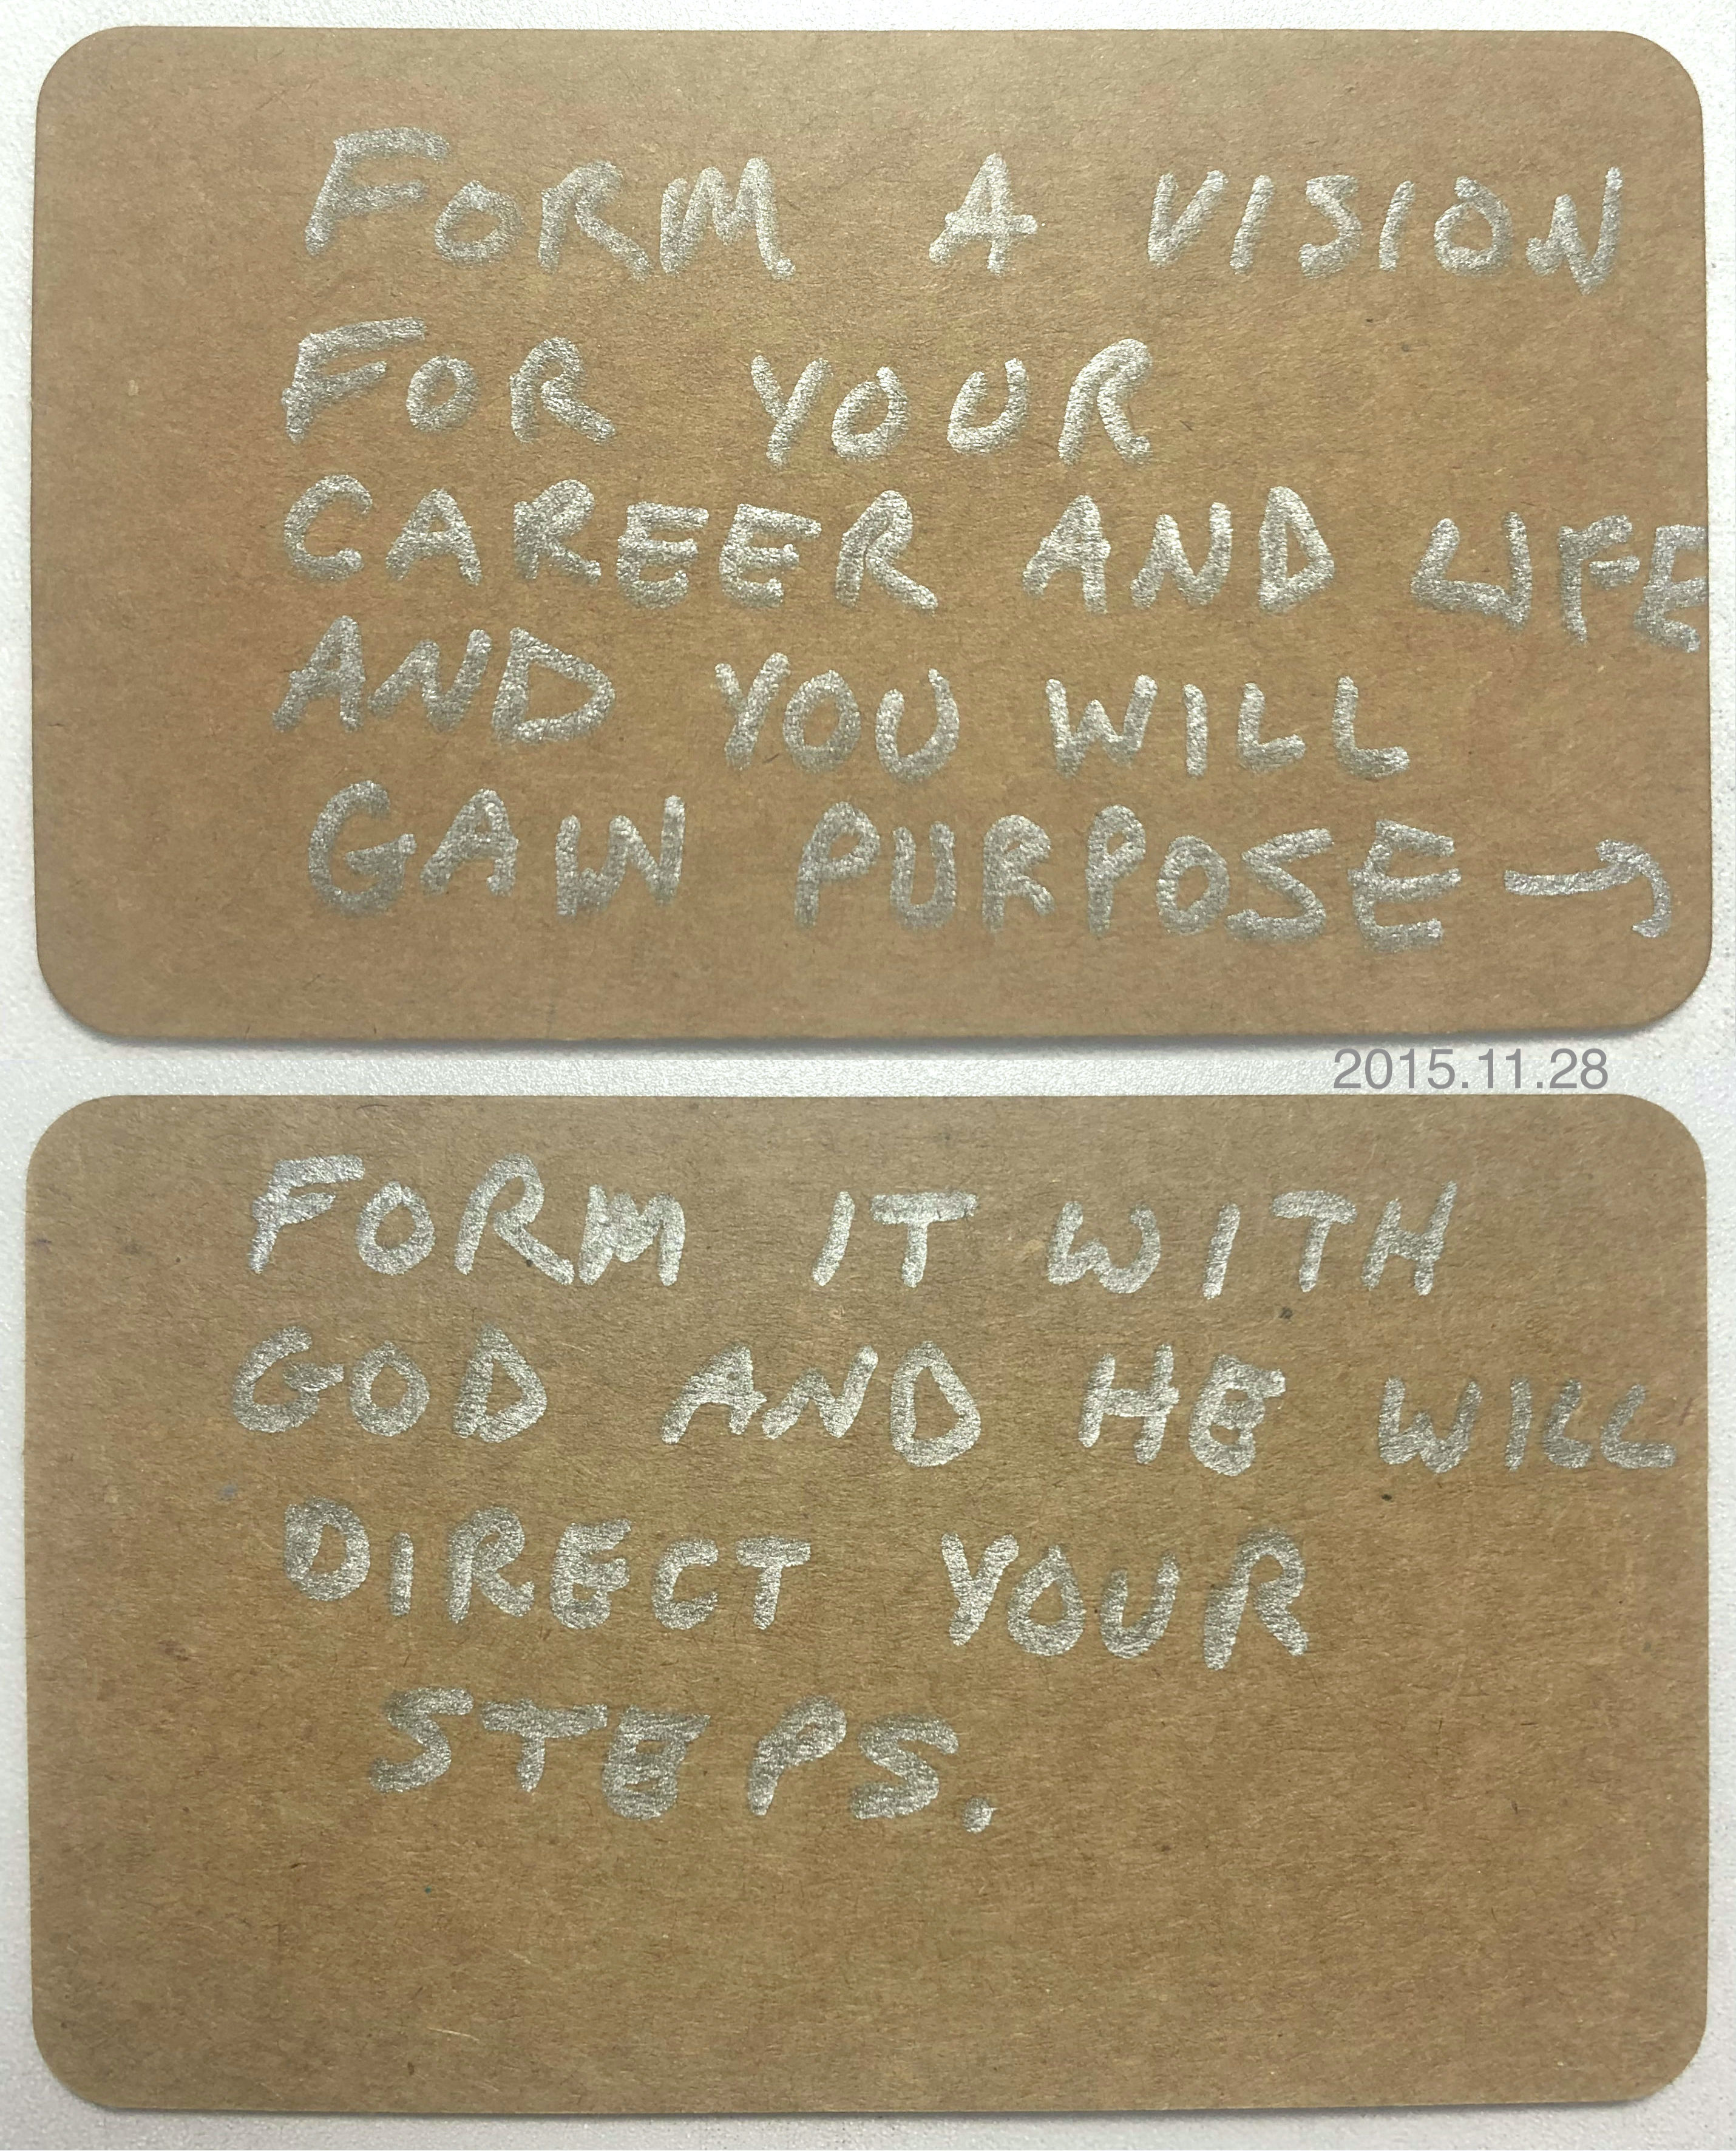 FORM A VISION
FOR YOUR
CAREER AND LIFE
AND YOU WILL
GAIN PURPOSE →
2015.11.28
FORM IT WITH
GOD AND HE WILL
DIRECT YOUR
STEPS.